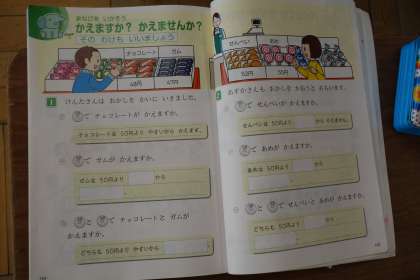 まなびを いかそう
かえますか? かえませんか?
そのわけも いいましょう
チョコレート ガム
48円 47円
1 けんたさんは おかしを かいに いきました。
で チョコレートが かえますか。
チョコレートは 50円より やすいから かえます。
で ガムが かえますか。
ガムは 50円より から
と で チョコレートと ガムが
かえますか。
どちらも 50円より やすいから
せんべい あめ
53円 55円
2 あすかさんも おかしを かおうと おもいます。
で せんべいが かえますか。
せんべいは 50円より から かえません。
で あめが かえますか。
あめは 50円より から
と で せんべいと あめが かえますか。
どちらも 50円より から